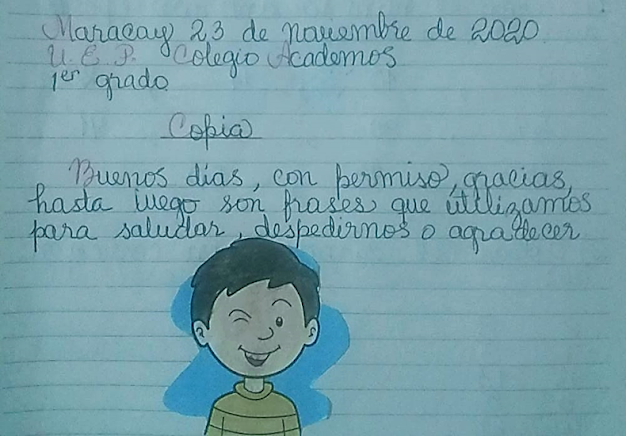 Maracay 23 de noviembre de 2020
U. E. P. Colegio Academos
1er grado
Copia
Buenos días, con permiso, gracias,
hasta luego son frases que utilizamos
para saludar, despedirnos o agradecer